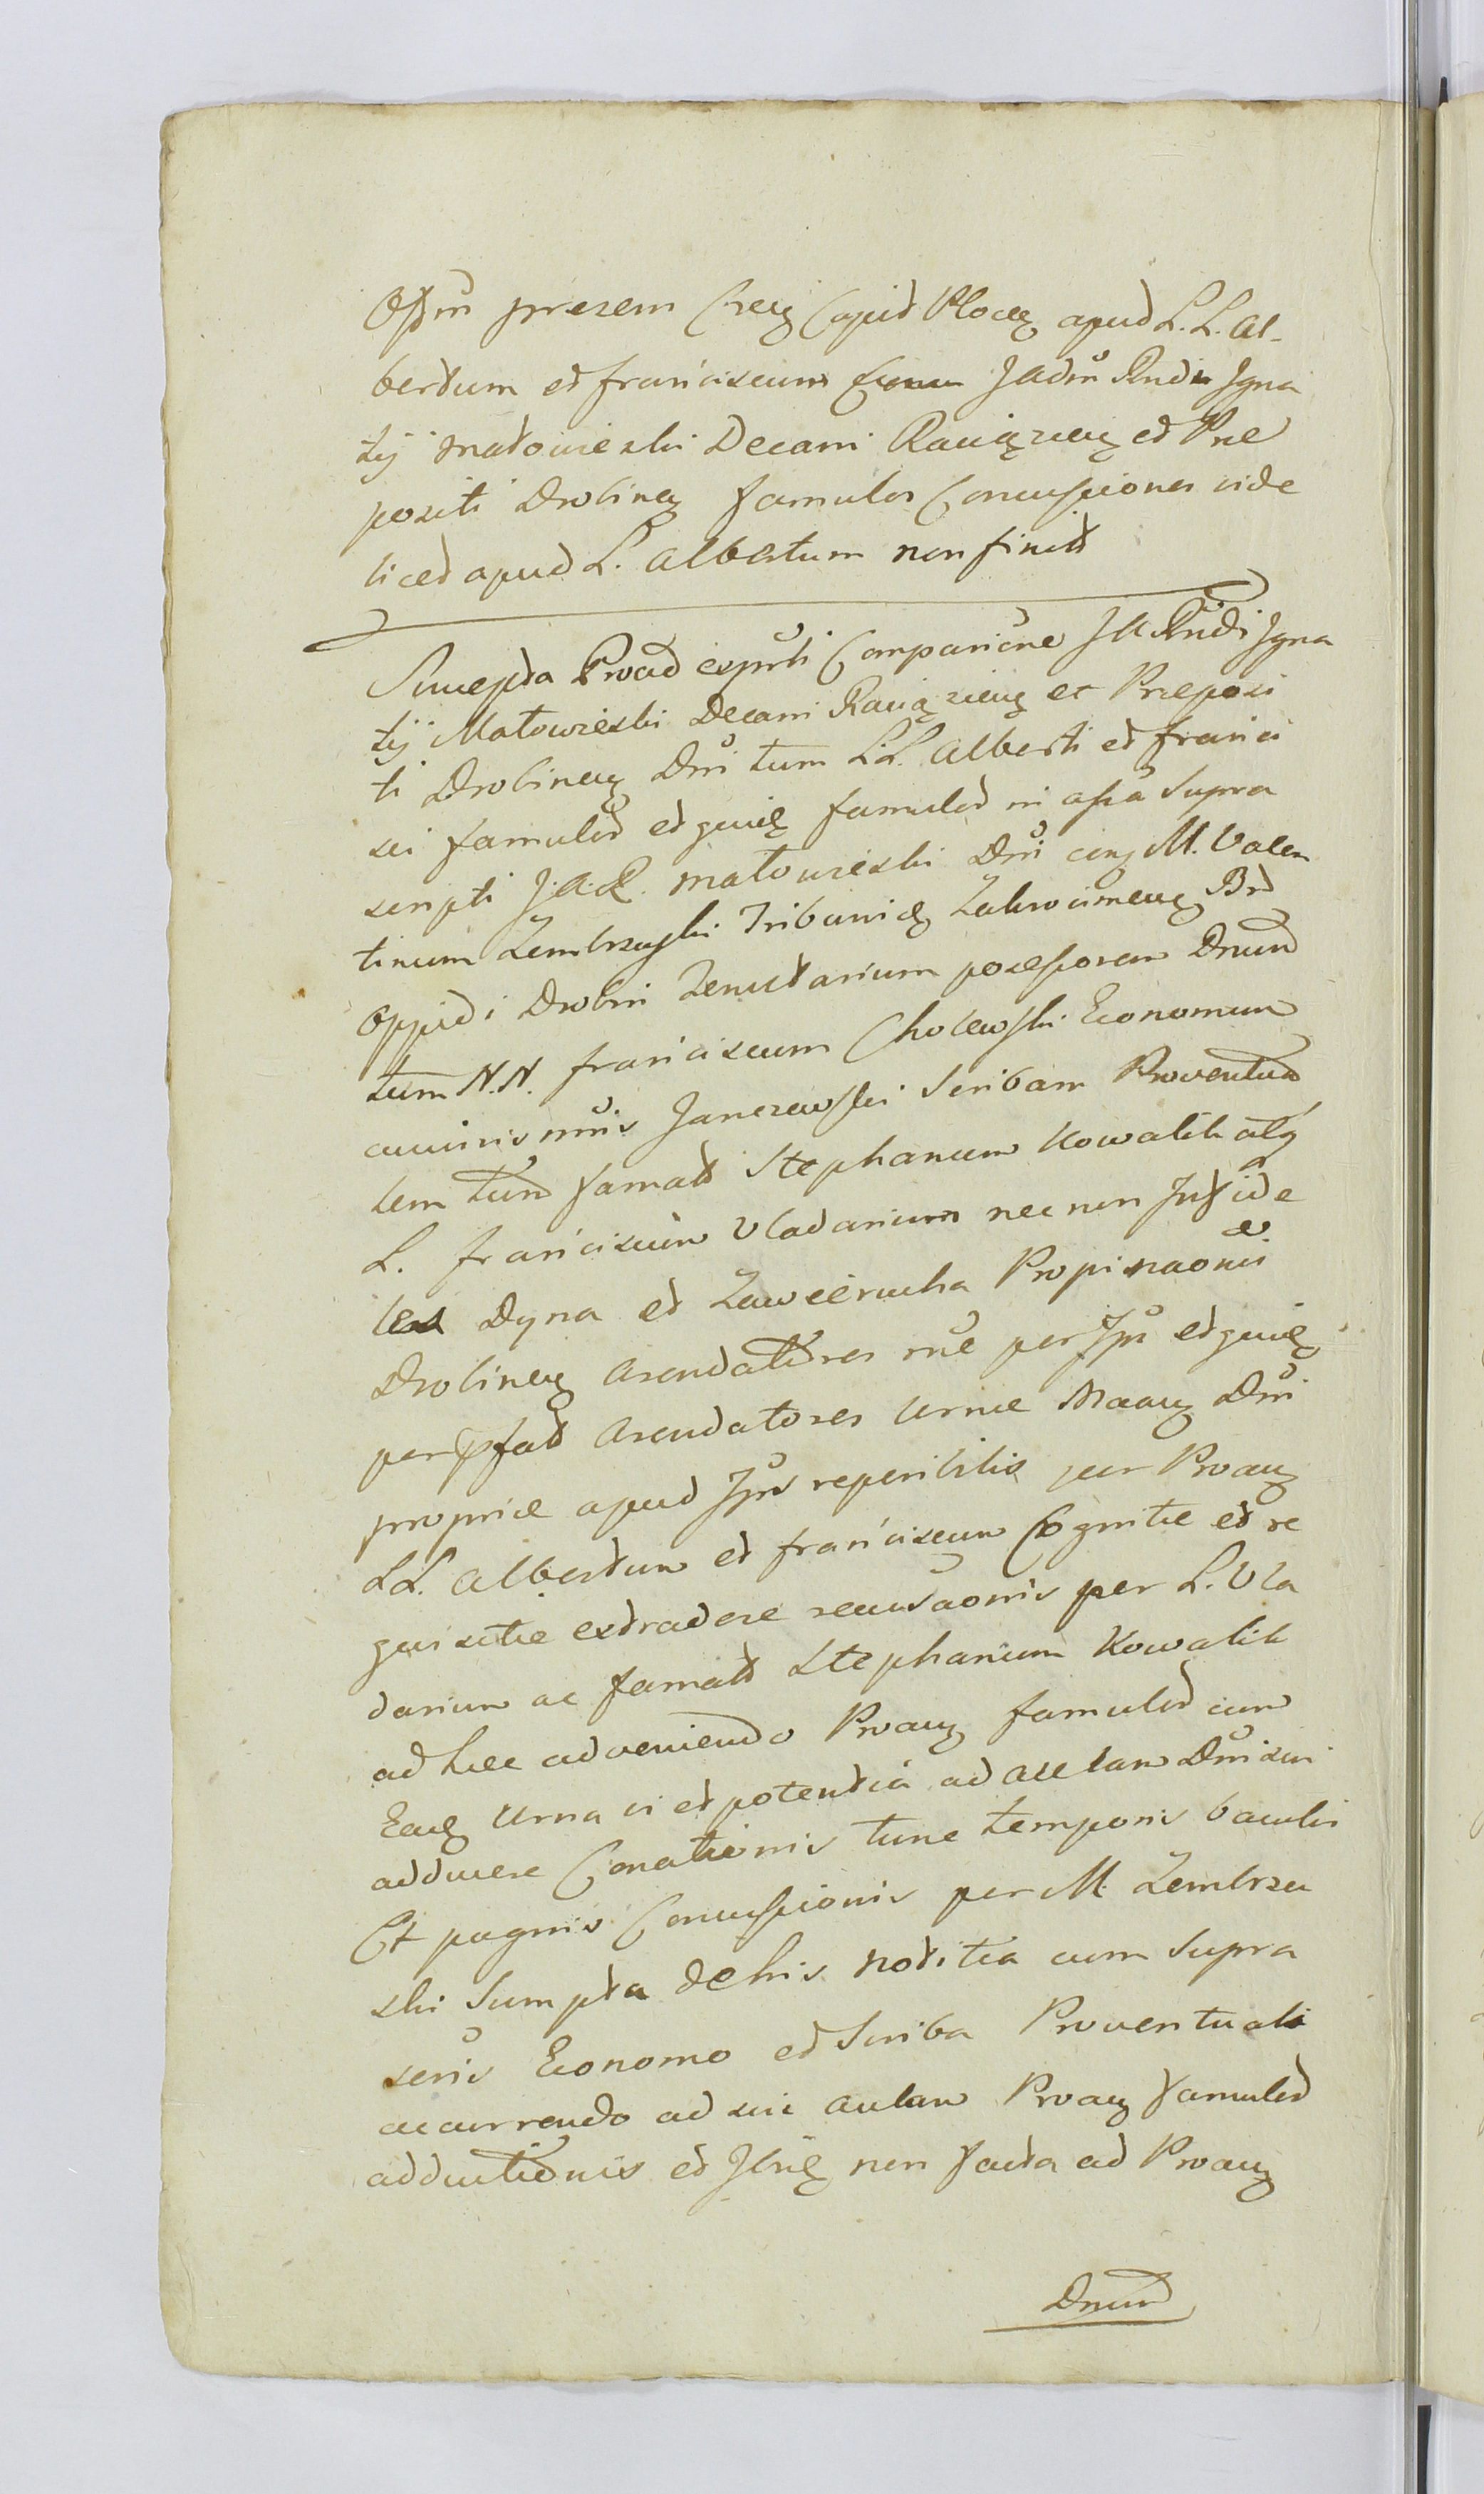 Offm prezem Creg Capit Ploceg apud L. L. Al-
bertum et Franciscum Jadm Rndi Igna
tij Małowieski Decani Raciązceg et Præ
positi Drobineg famulos Concussiones vide
licet apud L. Albertum non finitt
Suscepta Proad exprti Comparicne J A Rndi Igna
tij Małowieski Decani Raciązceg et Præposi
ti Drobineg Dni tum L. L. Alberti et Franci
sci famulor et quiileg famulor in assa supra
scripti J. A. R. Małowieski Dni cong M. Valen
tinum Zembrzuski Tribunideg Zakrocimeng Br
Oppidi Drobin Tenutarium possessorem Dnum
tum N. N. Franciscum Cholewski Economum
Janczewski Scribam Proventua
lem tum famatt Stephanum Kowalik atq
L. Franciscum Vladarium nec non Infide
les Dyna et Zawierucha Propinaonis
Drobineg Arendatores per Ips
per pfatt Arendatores urnæ Dni
propriæ apud Ips reperibilis per Proaug
LL. Albertum et Franciscum Cognitæ et re
quisitæ extradere recusaonis per L. Vla
darium ac famatt Stephanum Kowalik
ad hæc adveniendo Proaug famulor cum
Eadeg Urna vi et potentia ad Aulam Dni sui
adducere Conationis tunc temporis baculis
Et pugnis Concussionis per M. Zembrzu
ski Sumpta de his notitia cum supra
scris Economo et Scriba Proventuali
accurrendo ad sui Aulam Proaug famulor
adductionis et non facta ad Proaug
Dnum